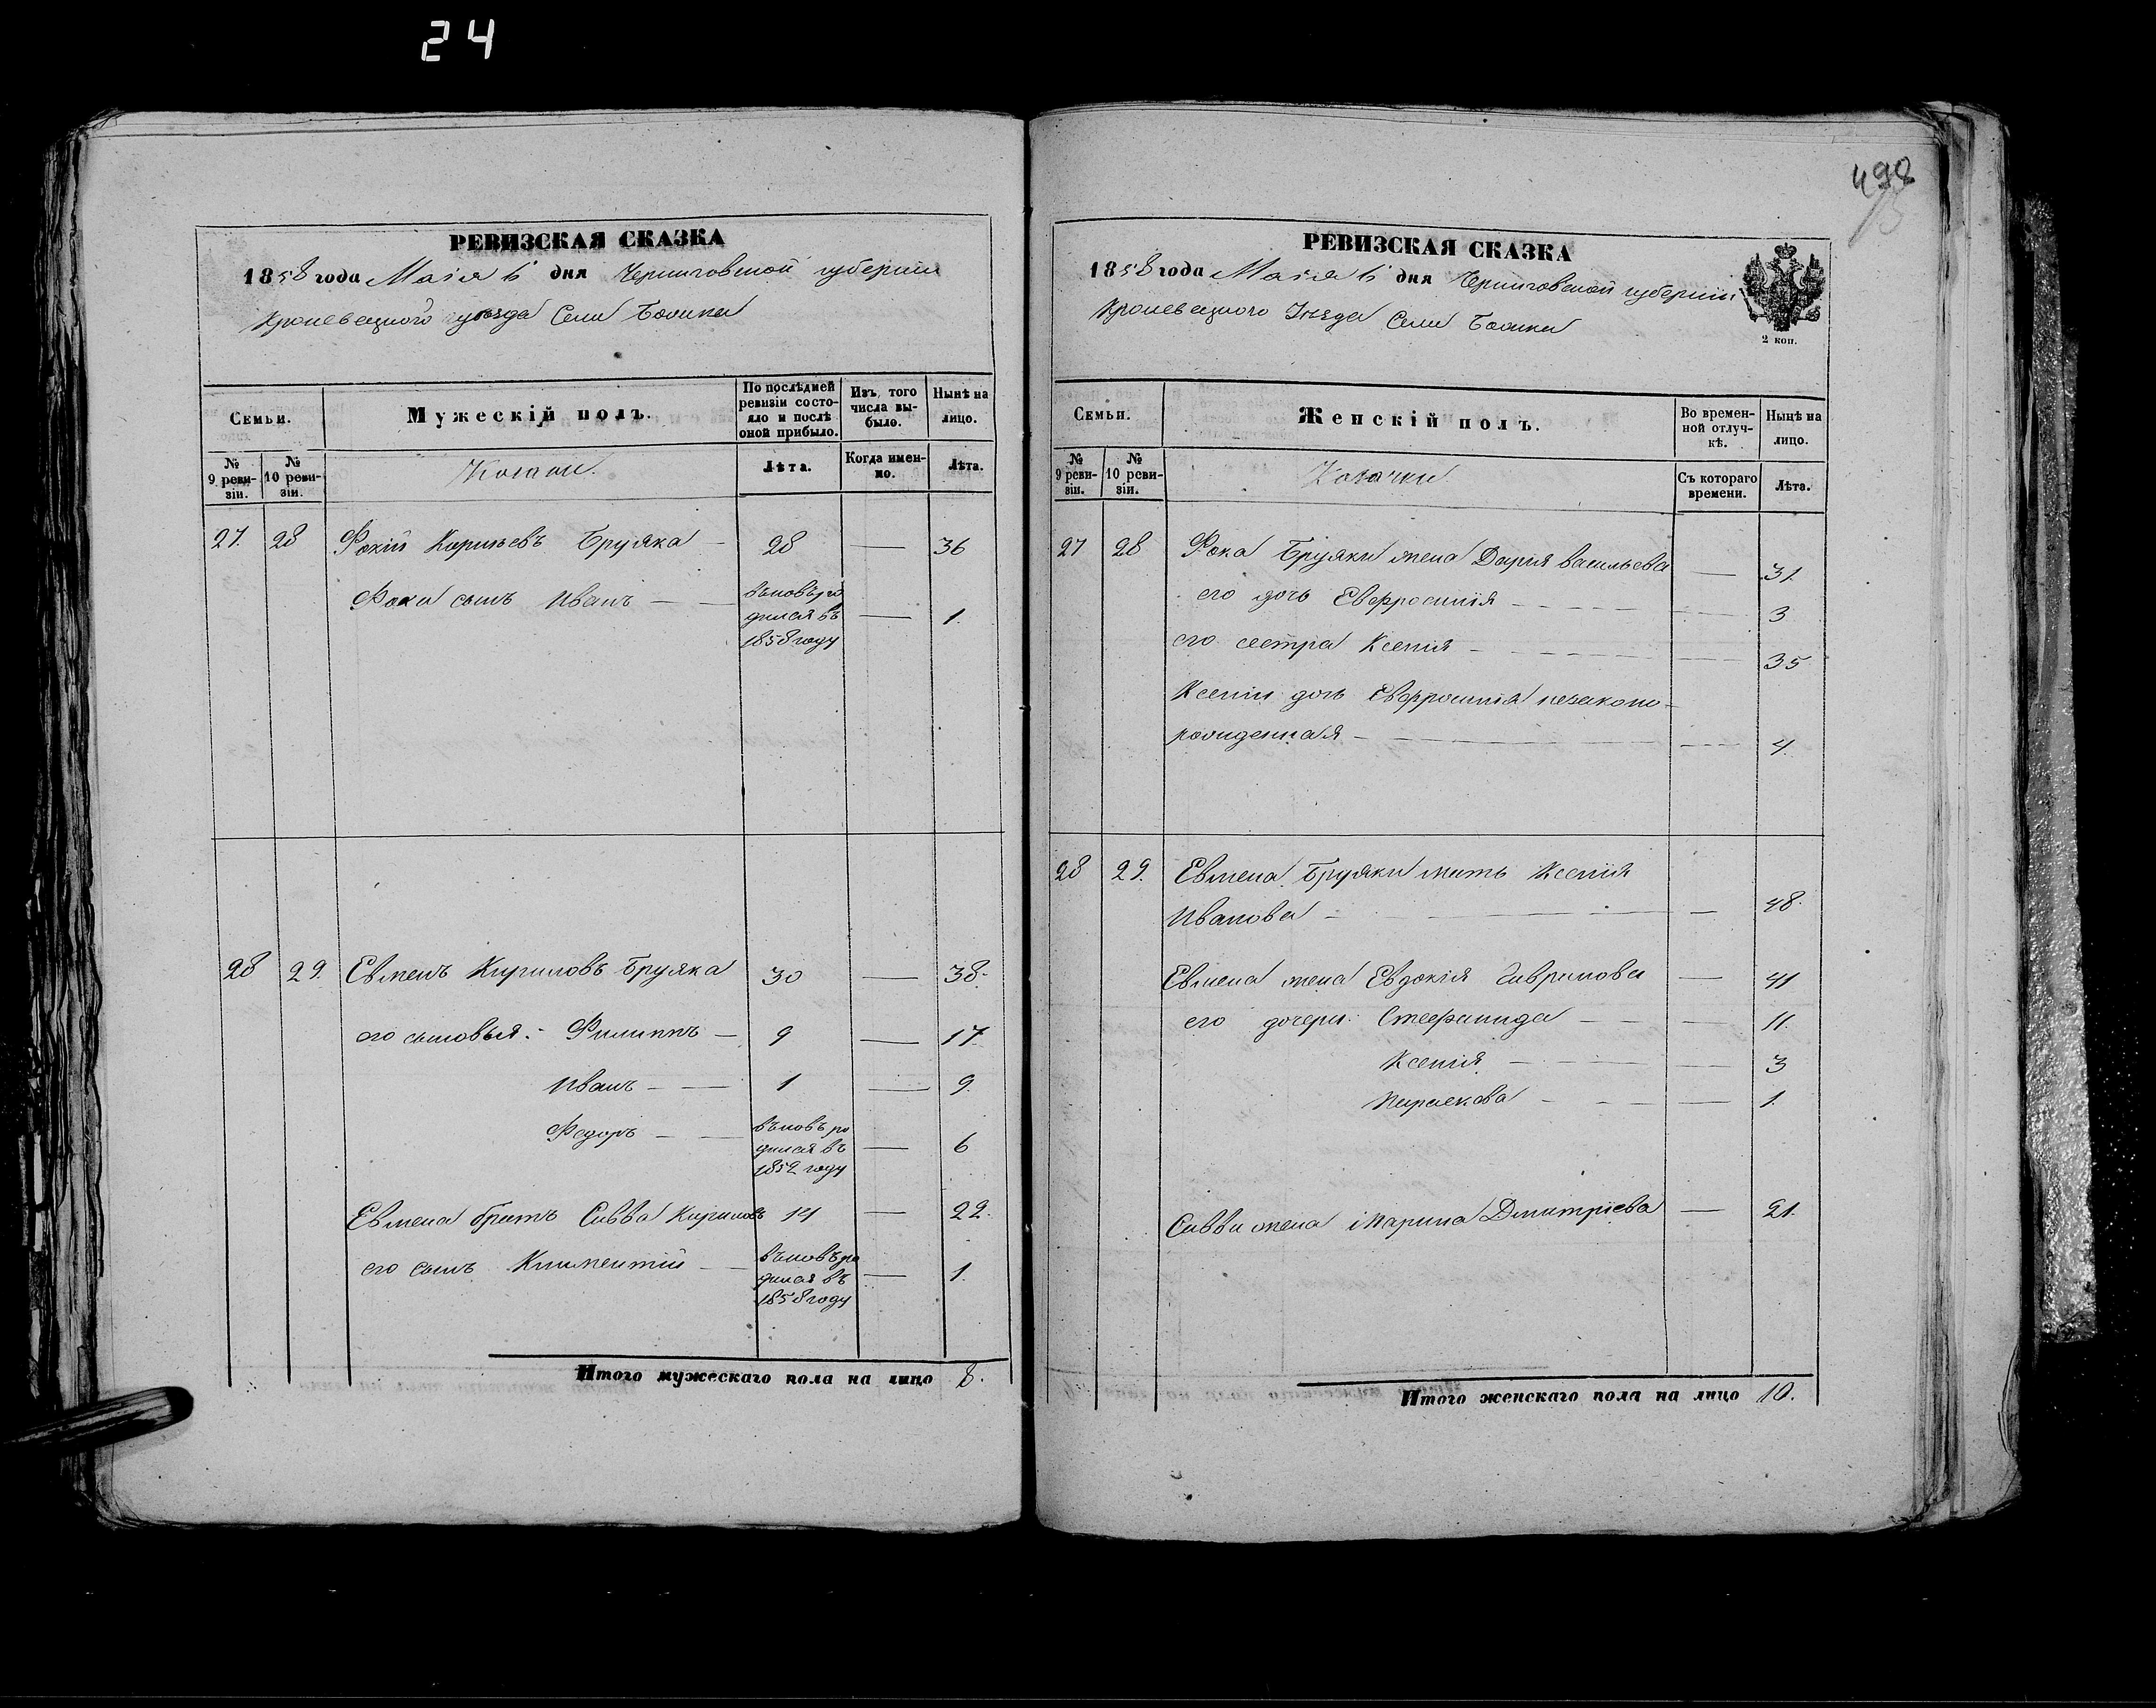 24
498
РЕВИЗСКАЯ СКАЗКА
1858 года Маія 6 дня Черниговской губерніи
Кролевецкого уѣзда Села
Семьи.
Мужескій полъ.
По послѣдней ревизіи состояло и послѣ оной прибыло.
Изъ того числа выбыло.
Нынѣ на лицо.
№ 9 реви-зіи.
№ 10 реви-зіи.
Козаки.
Лѣта.
Когда имен-но.
Лѣта.
27. 28 Фокій Кирилевъ Бруяка — 28 — 36
Фоки сынъ Иванъ — вновь ро
дился въ — 1.
1858 году
28 29. Евменъ Кириловъ Бруяка 30 — 38.
его сыновья: Филиппъ — 9 — 17.
Иванъ — 1 — 9.
Федоръ — вновь ро
дился въ — 6
1852 году
Евмена братъ Савва Кириловъ 14 — 22.
его сынъ Климентій — вновь ро
дился въ — 1.
1858 году
Итого мужескаго пола на лицо 8.
РЕВИЗСКАЯ СКАЗКА
1858 года Маія 6 дня Черниговской губерніи
Кролевецкого Уѣзда Села
2 коп.
Семьи.
Женскій полъ.
Во времен-ной отлуч-кѣ.
Нынѣ на лицо.
№ 9 реви-зіи.
№ 10 реви-зіи.
Козачки
Съ котораго времени.
Лѣта.
27 28 Фока Бруяки жена Дарія Васильева — 31.
его дочь Евфросинія — 3
его сестра Ксенія — 35
Ксеніи дочь Евфросинія незаконо-
рожденная — 4.
28 29. Евмена Бруяки мать Ксенія
Иванова — 48.
Евмена жена Евдокія Гаврилова — 41
его дочери: Стефанида — 11.
Ксенія — 3
Параскова — 1.
Саввы жена Марина Дмитріева — 21.
Итого женскаго пола на лицо 10.